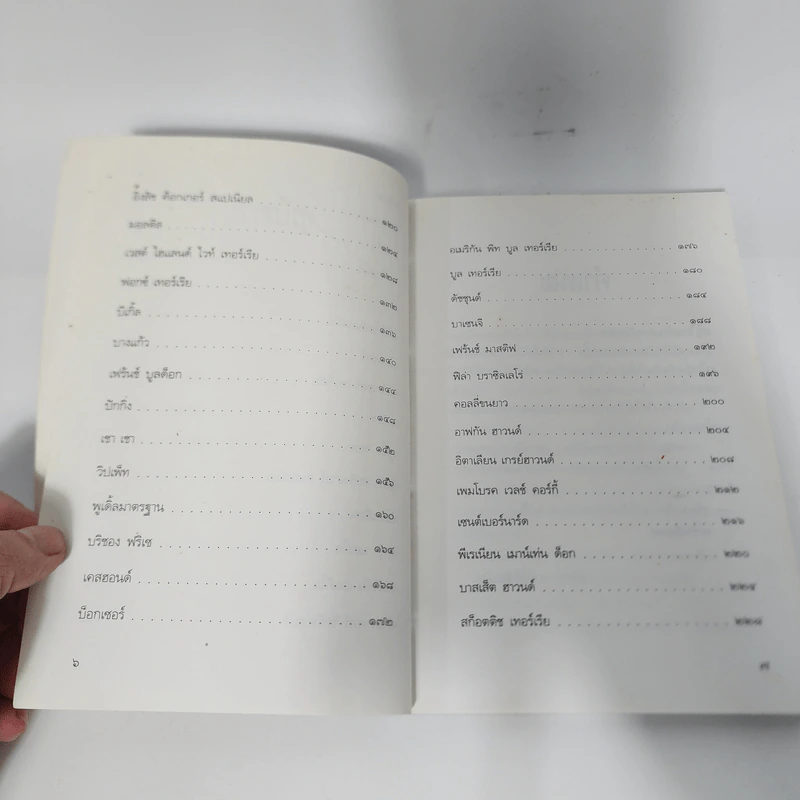 อิงลิช ค็อกเกอร์ สแปเนียล . . . . . . . . . . . . . . . ๑๒๐
มอลติส . . . . . . . . . . . . . . . . . . . . . . . . . . . ๑๒๔
เวสต์ ไฮแลนด์ ไวท์ เทอร์เรีย . . . . . . . . . . . . . . . ๑๒๘
ฟอกซ์ เทอร์เรีย . . . . . . . . . . . . . . . . . . . . . . ๑๓๒
บีเกิ้ล . . . . . . . . . . . . . . . . . . . . . . . . . . . . ๑๓๖
บางแก้ว . . . . . . . . . . . . . . . . . . . . . . . . . . . ๑๔๐
เฟร้นช์ บูลด็อก . . . . . . . . . . . . . . . . . . . . . . . ๑๔๔
ปักกิ่ง . . . . . . . . . . . . . . . . . . . . . . . . . . . . ๑๔๘
เชา เชา . . . . . . . . . . . . . . . . . . . . . . . . . . . ๑๕๒
วิปเพ็ท . . . . . . . . . . . . . . . . . . . . . . . . . . . ๑๕๖
พูเดิ้ลมาตรฐาน . . . . . . . . . . . . . . . . . . . . . . . ๑๖๐
บริชอง ฟริเซ . . . . . . . . . . . . . . . . . . . . . . . . ๑๖๔
เคสฮอนด์ . . . . . . . . . . . . . . . . . . . . . . . . . . ๑๖๘
บ็อกเซอร์ . . . . . . . . . . . . . . . . . . . . . . . . . . ๑๗๒
๖
อเมริกัน พิท บูล เทอร์เรีย . . . . . . . . . . . . . . . . ๑๗๖
บูล เทอร์เรีย . . . . . . . . . . . . . . . . . . . . . . . . ๑๘๐
ดัชชุนด์ . . . . . . . . . . . . . . . . . . . . . . . . . . . ๑๘๔
บาเซนจิ . . . . . . . . . . . . . . . . . . . . . . . . . . . ๑๘๘
เฟร้นช์ มาสติฟ . . . . . . . . . . . . . . . . . . . . . . . ๑๙๒
ฟิล่า บราซิลเลโร่ . . . . . . . . . . . . . . . . . . . . . . ๑๙๖
คอลลี่ขนยาว . . . . . . . . . . . . . . . . . . . . . . . . ๒๐๐
อาฟกัน ฮาวนด์ . . . . . . . . . . . . . . . . . . . . . . . ๒๐๔
อิตาเลียน เกรย์ฮาวนด์ . . . . . . . . . . . . . . . . . . . ๒๐๘
เพมโบรค เวลช์ คอร์กี้ . . . . . . . . . . . . . . . . . . . ๒๑๒
เซนต์เบอร์นาร์ด . . . . . . . . . . . . . . . . . . . . . . . ๒๑๖
พีเรเนียน เมาน์เท่น ด็อก . . . . . . . . . . . . . . . . . . ๒๒๐
บาสเส็ต ฮาวนด์ . . . . . . . . . . . . . . . . . . . . . . . ๒๒๔
สก็อตติช เทอร์เรีย . . . . . . . . . . . . . . . . . . . . . ๒๒๘
๗